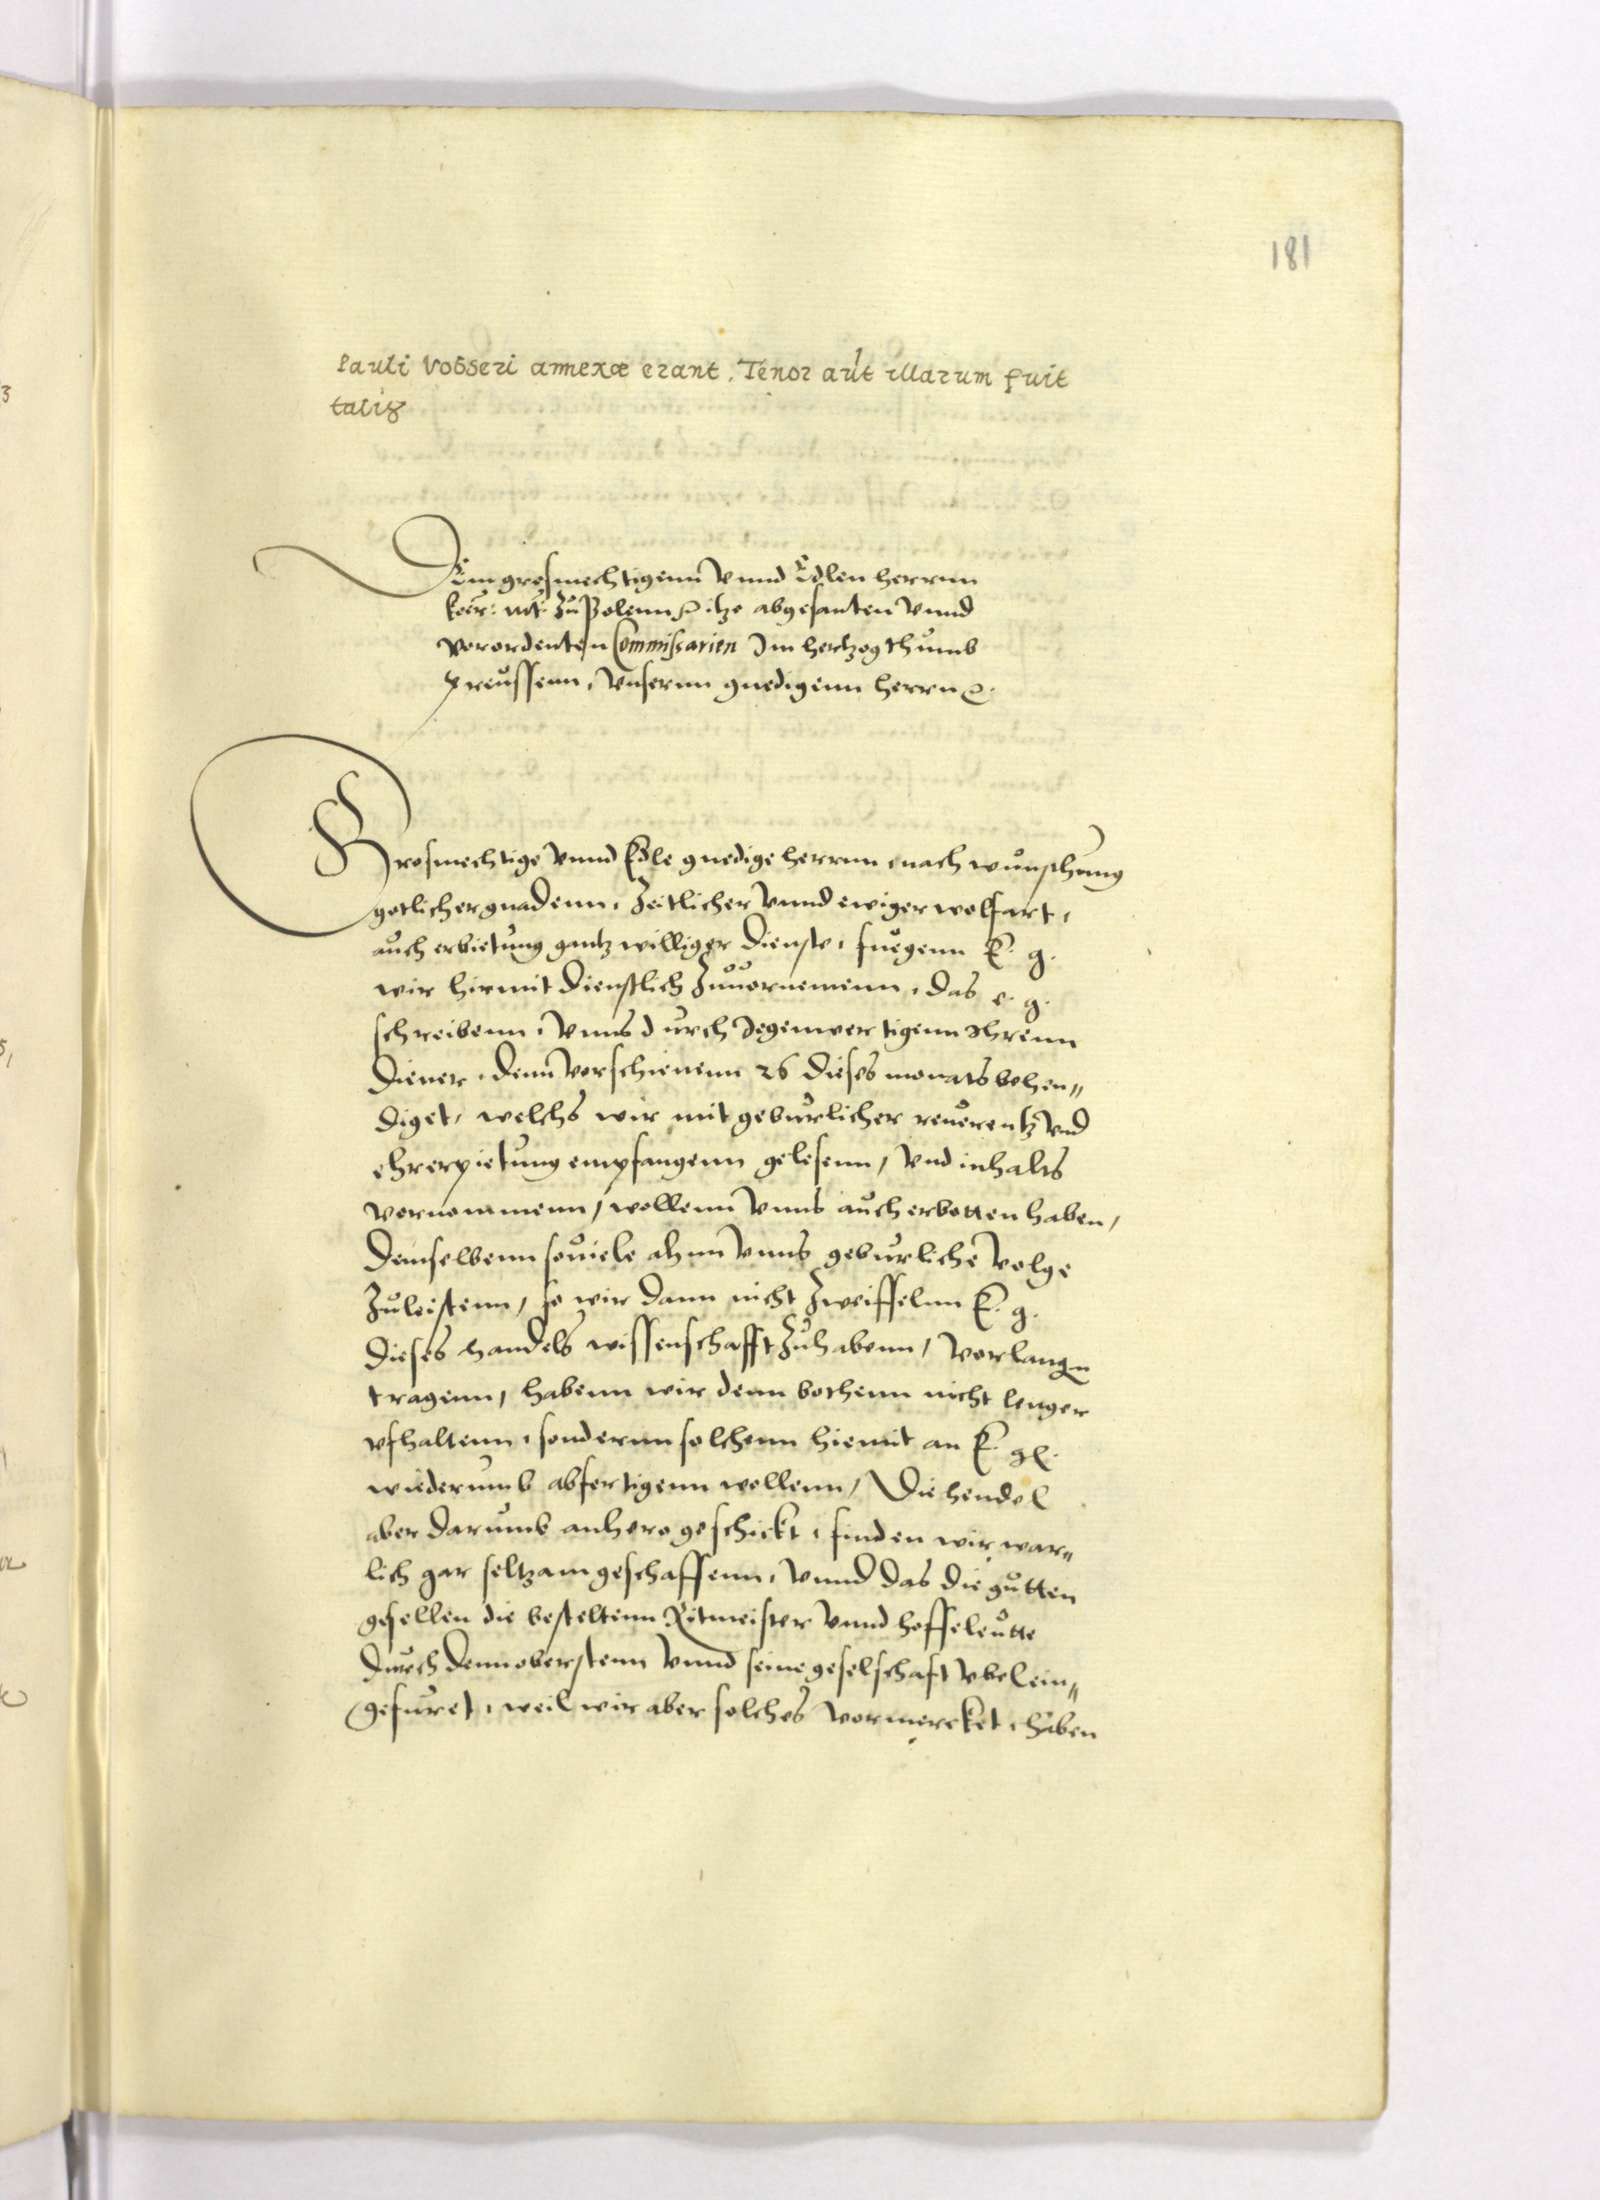 181
Pauli Vobseri annexæ erant. Tenor aut illarum fuit
talis
Den grosmechtigenn vnnd Edlen herrnn
koer: mt: zu Polenn &c itzo abgesanten vnnd
verordenten Commissarien Im hertzogthumb
Preussenn, vnsernn gnedigenn herrn &c.
Grosmechtige vnnd Edle gnedige herrnn, nach wunschung
gotlicher gnadenn, Zeitlicher vnnd ewiger wolfart,
auch erbietung gantz williger dienste, fuegenn E. g.
wir hirmit dienstlich Zuuornemenn, das e. g.
schreibenn, vnns durch Jegenwertigenn Ihrenn
diener, denn vorschienenn 26 dieses monats behen„
diget, welchs wir mit geburlicher reuerentz vnd
ehrerpietung empfangenn gelesenn, vnd inhalts
vernommenn, wollenn vnns auch erbotten haben,
demselbenn souiele ahnn vnns geburliche volge
Zuleistenn, so wir dann nicht Zweiffelnn E. g.
dieses handels wissenschafft Zuhabenn, vorlangn
tragenn, habenn wir denn bothenn nicht lenger
vfhaltenn, sondernn solchenn hiemit an E. gl.
wiederumb abfertigenn wollenn, Die hendel
aber darumb anhero geschickt, finden wir war„
lich gar seltzam geschaffenn, vnnd das die gutten
gesellen die bestelten Ritmeister vnnd hoffeleutte
durch denn oberstenn vnnd seine geselschaft vbel ein„
gefuret, weil wir aber solches vormercket, haben